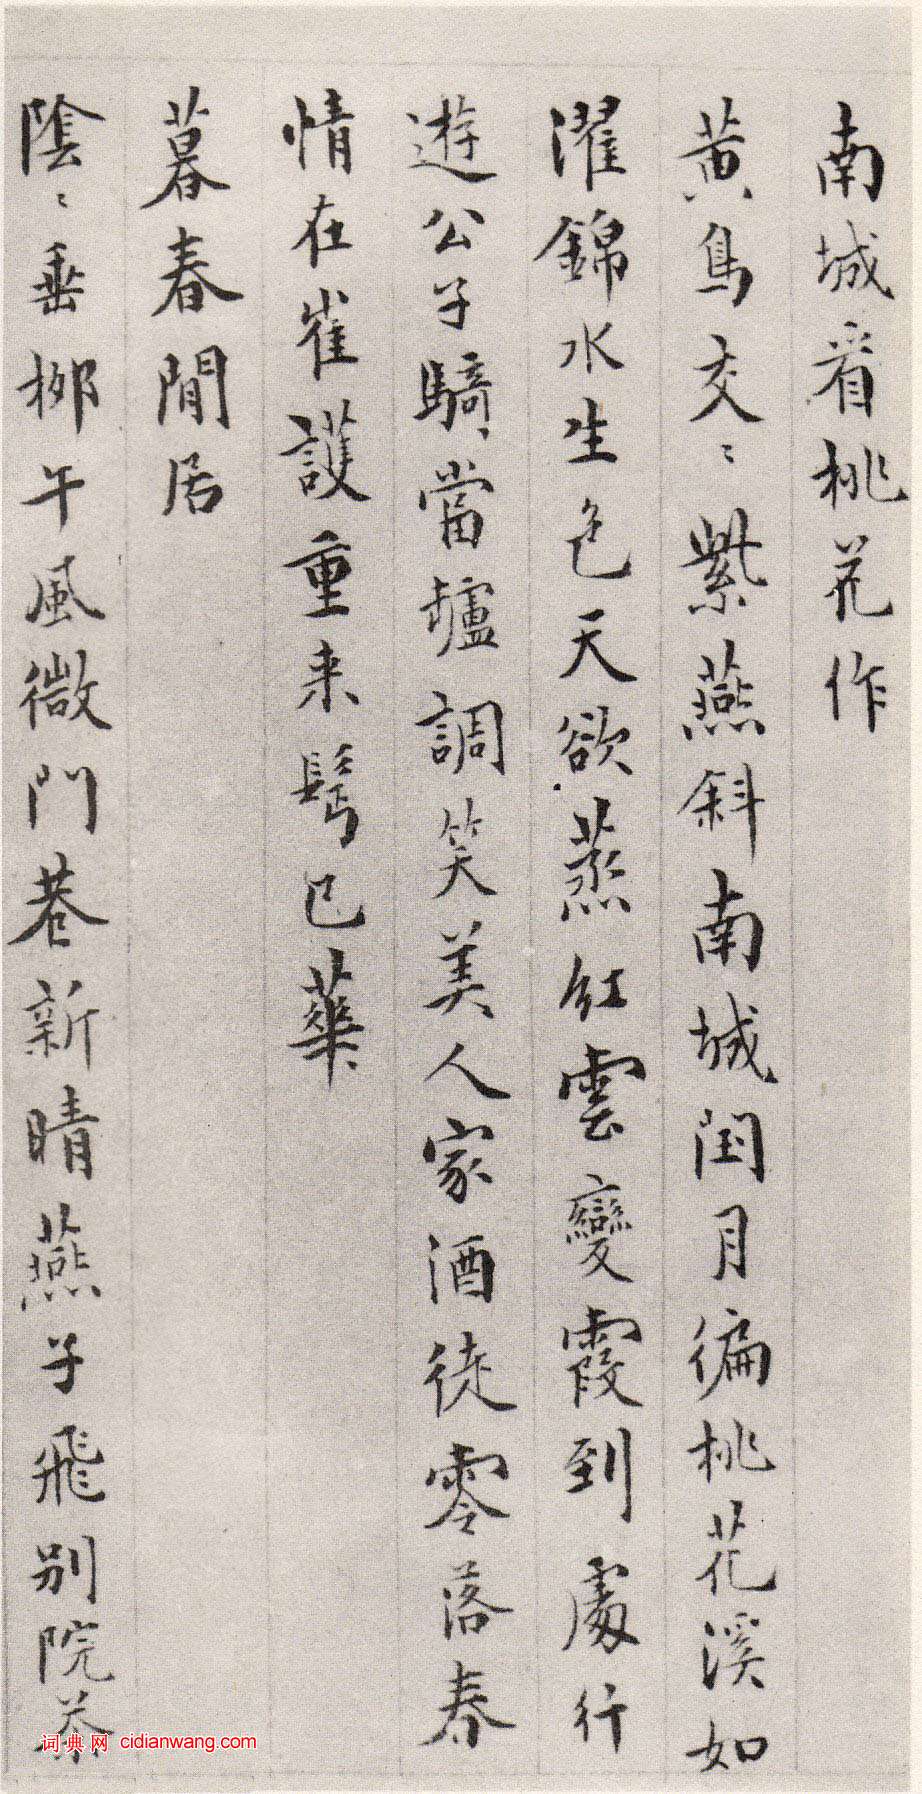 南城看桃花作
黄鳥交〻紫燕斜南城閏月偏桃花溪如
濯錦水生色天欲蒸紅雲變霞到處行
遊公子騎當壚調笑美人家酒徒零落春
情在崔護重来鬂已華
暮春閒居
陰〻垂栁午風微門巷新晴燕子飛別院茶
词典网 cidianwang.com